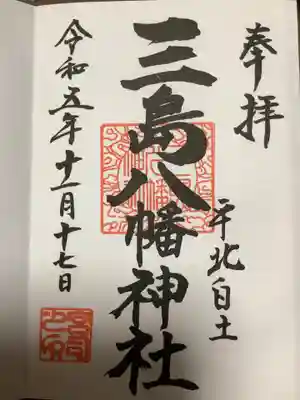 奉拝
平北白土
三島八幡神社
令和五年十一月十七日